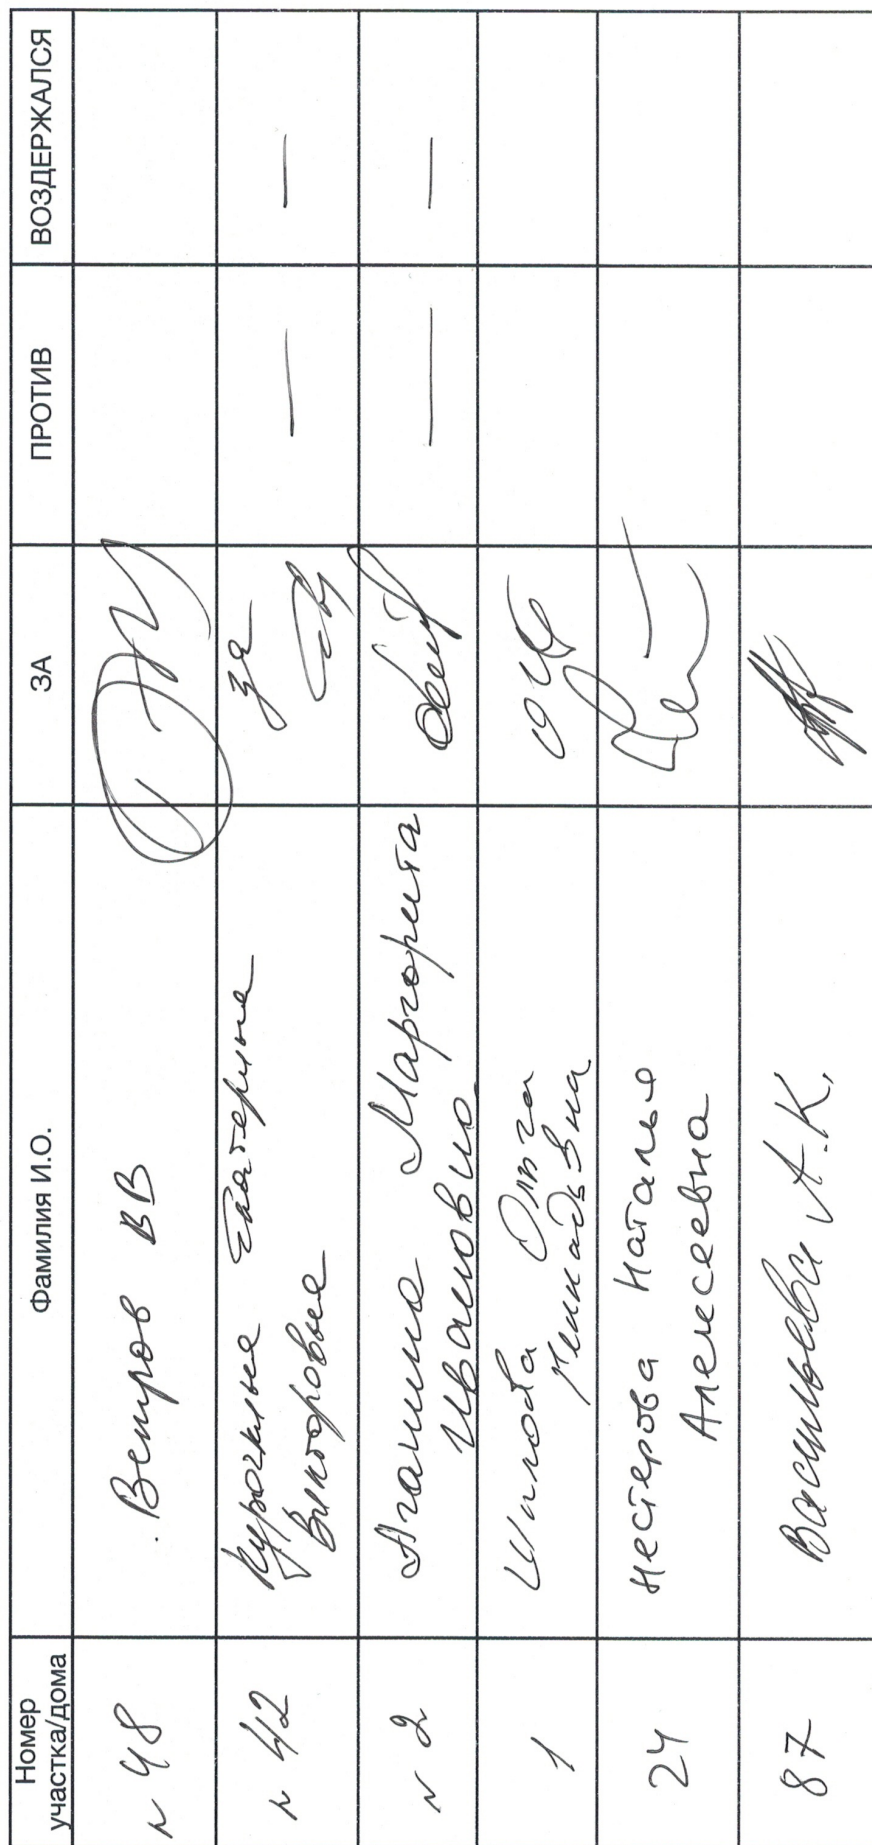 Номер участка/дома Фамилия И.О. ЗА ПРОТИВ ВОЗДЕРЖАЛСЯ
N 48 Ветров ВВ
N 42 Курочкина Екатерина за — —
Викторовна
N 2 Агашина Маргорита — —
Ивановна
1 Шилова Ольга
Геннадьевна
24 Нестерова Наталья
Алексеевна
87 Васильева А.К.